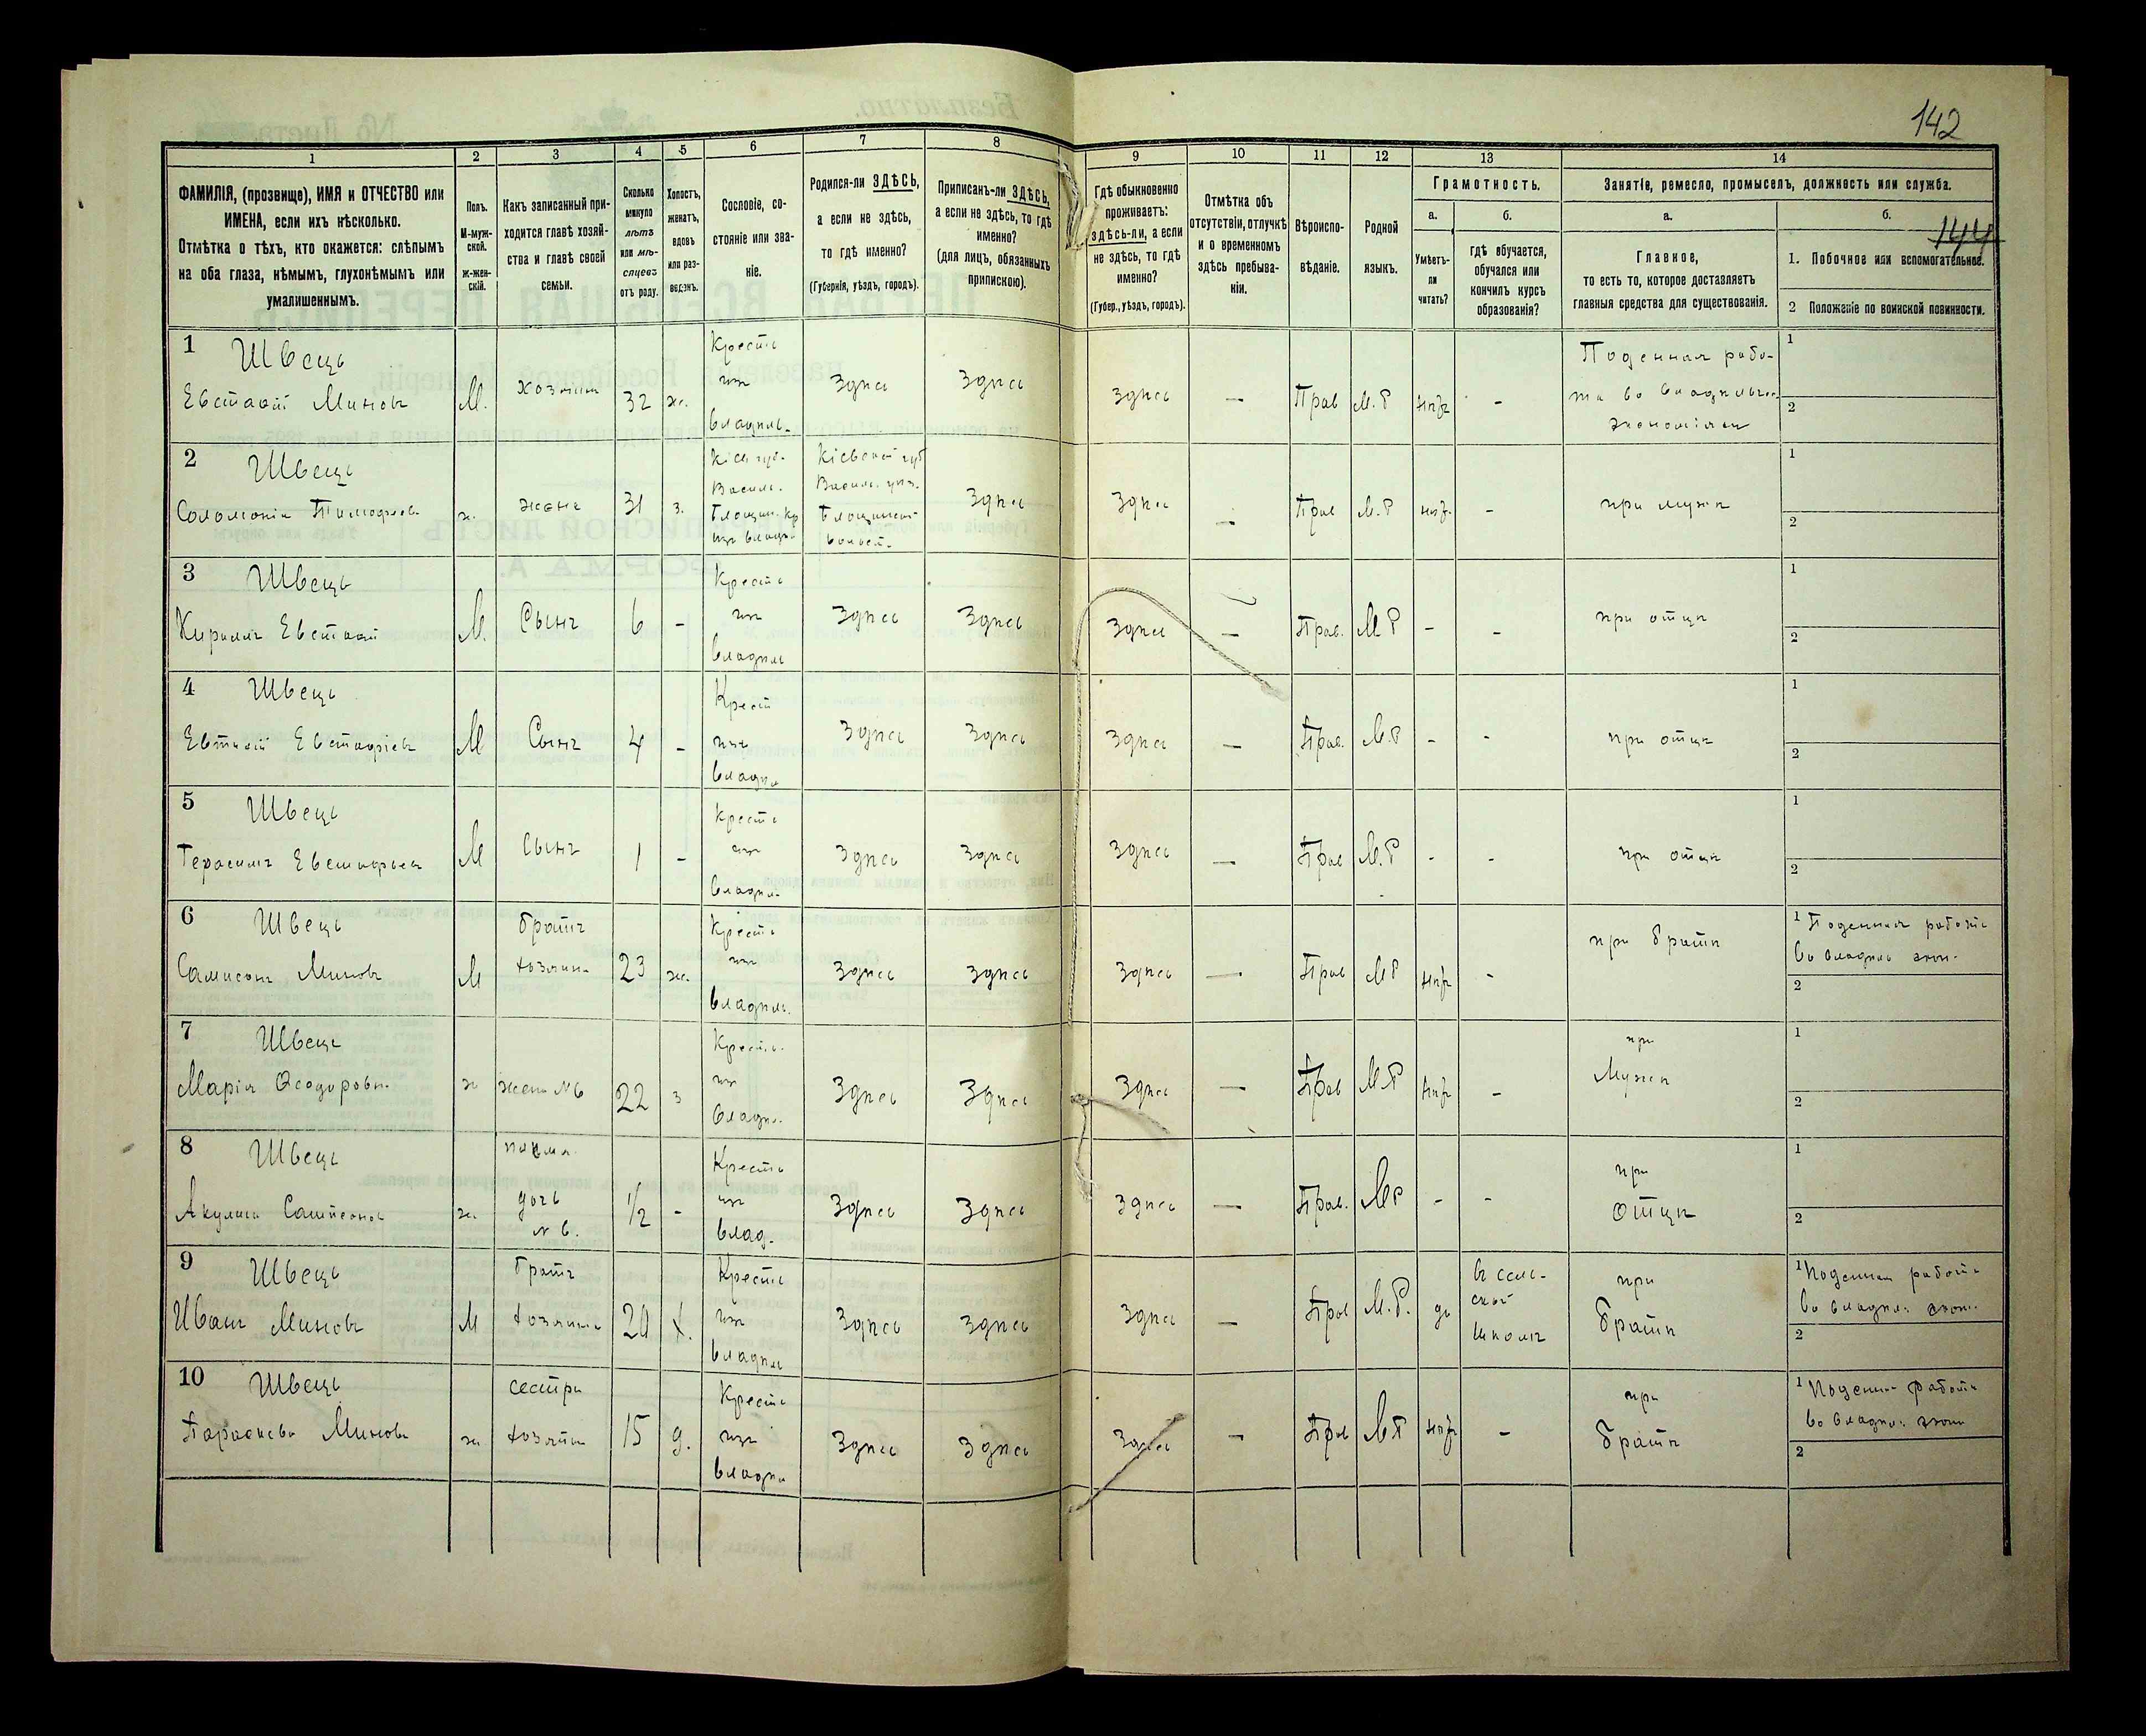 142
144
1
2
3
4
5
6
7
8
9
10
11
12
13
14
ФАМИЛІЯ, (прозвище), ИМЯ и ОТЧЕСТВО или
ИМЕНА, если ихъ нѣсколько.
Отмѣтка о тѣхъ, кто окажется: слѣпымъ
на оба глаза, нѣмымъ, глухонѣмымъ или
умалишеннымъ.
Полъ.
М-муж-
ской.
ж-жен-
скій.
Какъ записанный при-
ходится главѣ хозяй-
ства и главѣ своей
семьи.
Сколько
минуло
лѣтъ
или мѣ-
сяцевъ
отъ роду.
Холостъ,
женатъ,
вдовъ
или раз-
веденъ.
Сословіе, со-
стояніе или зва-
ніе.
Родился-ли ЗДѢСЬ,
а если не здѣсь,
то гдѣ именно?
(Губернія, уѣздъ, городъ).
Приписанъ-ли ЗДѢСЬ,
а если не здѣсь, то гдѣ
именно?
(для лицъ, обязанныхъ
припискою).
Гдѣ обыкновенно
проживаетъ:
здѣсь-ли, а если
не здѣсь, то гдѣ
именно?
(Губер., уѣздъ, городъ).
Отмѣтка объ
отсутствіи, отлучкѣ
и о временномъ
здѣсь пребыва-
ніи.
Вѣроиспо-
вѣданіе.
Родной
языкъ.
Грамотность.
а.
Умѣетъ-
ли
читать?
б.
гдѣ обучается,
обучался или
кончилъ курсъ
образованія?
Занятіе, ремесло, промыселъ, должность или служба.
а.
Главное,
то есть то, которое доставляетъ
главныя средства для существованія.
б.
1. Побочное или вспомогательное.
2 Положеніе по воинской повинности.
1 Швець
Евстафій Миновъ
М.
хозяинъ
32
ж.
Крестъ
изъ
владѣль.
Здѣсь
Здѣсь
Здѣсь
—
Прав
М.Р
нѣтъ
-
Поденная рабо-
та во владѣльч.
экономіяхъ
1
2
2 Швець
Соломонія Тимофеев.
ж.
жена
31
з.
Кіев губ.
Васил.
Блощин. кр
изъ владѣ
Кіевской губ
Васил. уѣз.
Блощинской
волост.
Здѣсь
Здѣсь
—
Прав
М.Р
нѣт.
-
при мужѣ
1
2
3 Швець
Кирилъ Евстафій
М.
Сынъ
6
-
Крестъ
изъ
владѣль
Здѣсь
Здѣсь
Здѣсь
—
Прав.
М Р
-
-
при отцѣ
1
2
4 Швець
Евтихій Евстафіевъ
М
Сынъ
4
-
Крест
изъ
владѣл
Здѣсь
Здѣсь
Здѣсь
—
Прав.
М.Р
-
-
при отцѣ
1
2
5 Швець
Герасимъ Евстафьев
М
Сынъ
1
-
Крестъ
изъ
владѣл.
Здѣсь
Здѣсь
Здѣсь
—
Прав
М.Р
-
-
при отцѣ
1
2
6 Швець
Самсонъ Миновъ
М
братъ
хозяина
23
ж.
Крестъ
изъ
владѣль.
Здѣсь
Здѣсь
Здѣсь
—
Прав
МР
нѣт
-
при братѣ
1 Поденная работа
во владѣль экон.
2
7 Швець
Марія Ѳеодоровн.
ж
жена №6
22
з
Крестъ.
изъ
владѣл.
Здѣсь
Здѣсь
Здѣсь
—
Прав
М.Р
нѣт
-
при
Мужѣ
1
2
8 Швець
Акулина Сампсонов
ж.
дочь
№ 6.
1/2
-
Крестъ
изъ
влад.
Здѣсь
Здѣсь
Здѣсь
—
Прав.
МР
-
-
при
отцѣ
1
2
9 Швець
Иванъ Миновъ
М
братъ
хозяина
20
х.
Крестъ
изъ
владѣль
Здѣсь
Здѣсь
Здѣсь
—
Прав
М.Р.
да
въ сель-
ской
школѣ
при
братѣ
1 Поденная работа
во владѣл. экон.
2
10 Швець
Параскева Минова
ж
сестра
хозяина
15
д.
Крестъ
изъ
владѣл
Здѣсь
Здѣсь
Здѣсь
—
Прав
МР
нѣт
-
при
братѣ
1 Поденная работа
во владѣл. экон
2